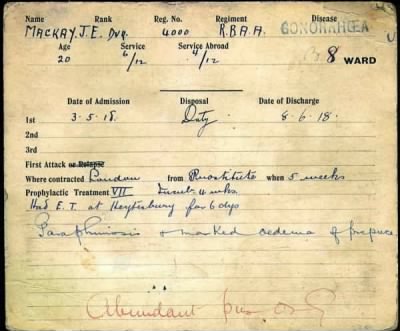 Name Rank Reg. No. Regiment Disease
MACKAY. J. E. Dvr. 4000 R.B.A.A. GONORRHŒA
Age Service Service Abroad
20 6/12 4/12 8 WARD
Date of Admission Disposal Date of Discharge
1st 3-5-18. Duty 8-6-18.
2nd
3rd
First Attack or Relapse
Where contracted London from Prostitute when 5 weeks
Prophylactic Treatment VII Incub. 4 wks.
Had E.T. at Heytesbury for 6 dys
Paraphimosis & marked oedema of prepuce
Abundant pus